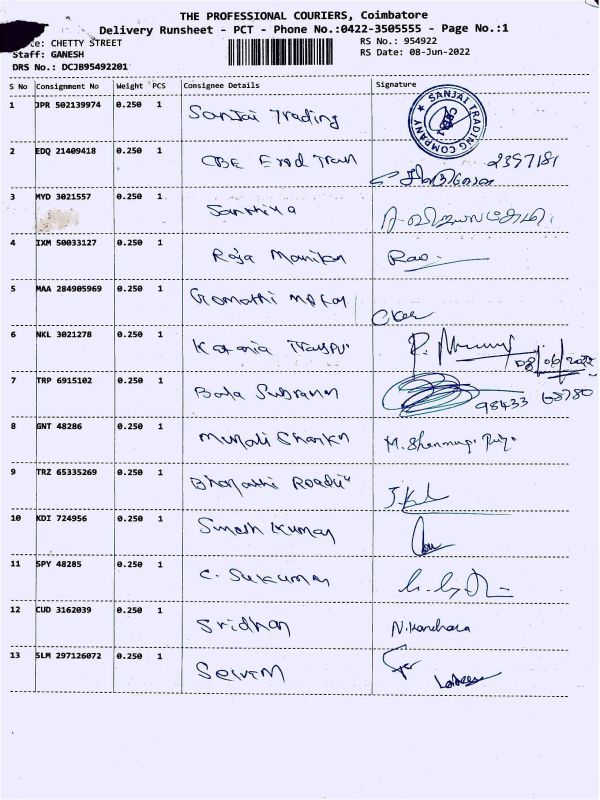 THE PROFESSIONAL COURIERS, Coimbatore
Delivery Runsheet - PCT - Phone No.:0422-3505555 - Page No.:1
CHETTY STREET
RS No.: 954922
Staff: GANESH
RS Date: 08-Jun-2022
DRS No.: DCJB95492201
S No Consignment No Weight PCS Consignee Details Signature
1 JPR 502139974 0.250 1 Sanjai Trading SANJAI TRADING COMPANY
2 EDQ 21409418 0.250 1 CBE 2357181
3 MYD 3021557 0.250 1
4 IXM 50033127 0.250 1 Roja Manikn Rao.
5 MAA 284905969 0.250 1 Gomathi
6 NKL 3021278 0.250 1 08/06/2022
7 TRP 6915102 0.250 1 Bala Subraman 98433 68780
8 GNT 48286 0.250 1 Murali Shankr M. Shenmuga
9 TRZ 65335269 0.250 1 Bharathi
10 KDI 724956 0.250 1 Kumar
11 SPY 48285 0.250 1 C. Sukumar
12 CUD 3162039 0.250 1 Sridhar
13 SLM 297126072 0.250 1 Selvem